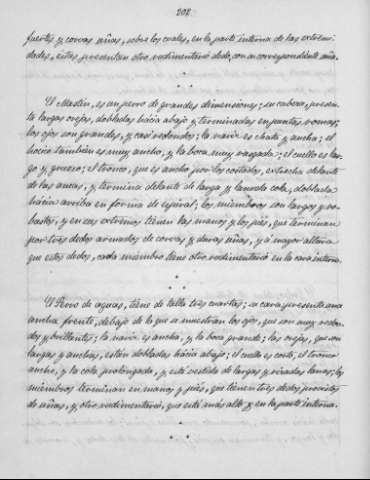 202
fuertes y corvas uñas, sobre los cuales, en la parte interna de las extremi-
dades, estas presentan otro rudimentario dedo, con su correspondiente uña.
El Mastín, es un perro de grandes dimensiones; su cabeza, presen-
ta largas orejas, dobladas hacia abajo y terminadas en puntas romas;
los ojos son grandes, y casi redondos; la nariz es chata y ancha; el
hocico también es muy ancho, y la boca muy rasgada; el cuello es lar-
go y grueso; el tronco, que es ancho por los costados, estrecha delante
de las ancas, y termina delante de larga y lanuda cola, doblada
hacia arriba en forma de espiral; los miembros son largos y ro-
bustos, y en sus extremos tienen las manos y los piés, que terminan
por tres dedos armados de corvas y duras uñas, y a mayor altura
que estos dedos, cada miembro tiene otro rudimentario en la cara interna.
El Perro de aguas, tiene de talla tres cuartas; su cara presenta una
ancha frente, debajo de la que se muestran los ojos, que son muy redon-
dos y brillantes; la nariz es ancha, y la boca grande; las orejas, que son
largas y anchas, están dobladas hacia abajo; el cuello es corto, el tronco
ancho, y la cola prolongada, y está vestida de largas y rizadas lanas; los
miembros terminan en manos y piés, que tienen tres dedos provistos
de uñas, y otro rudimentario, que está más alto y en la parte interna.